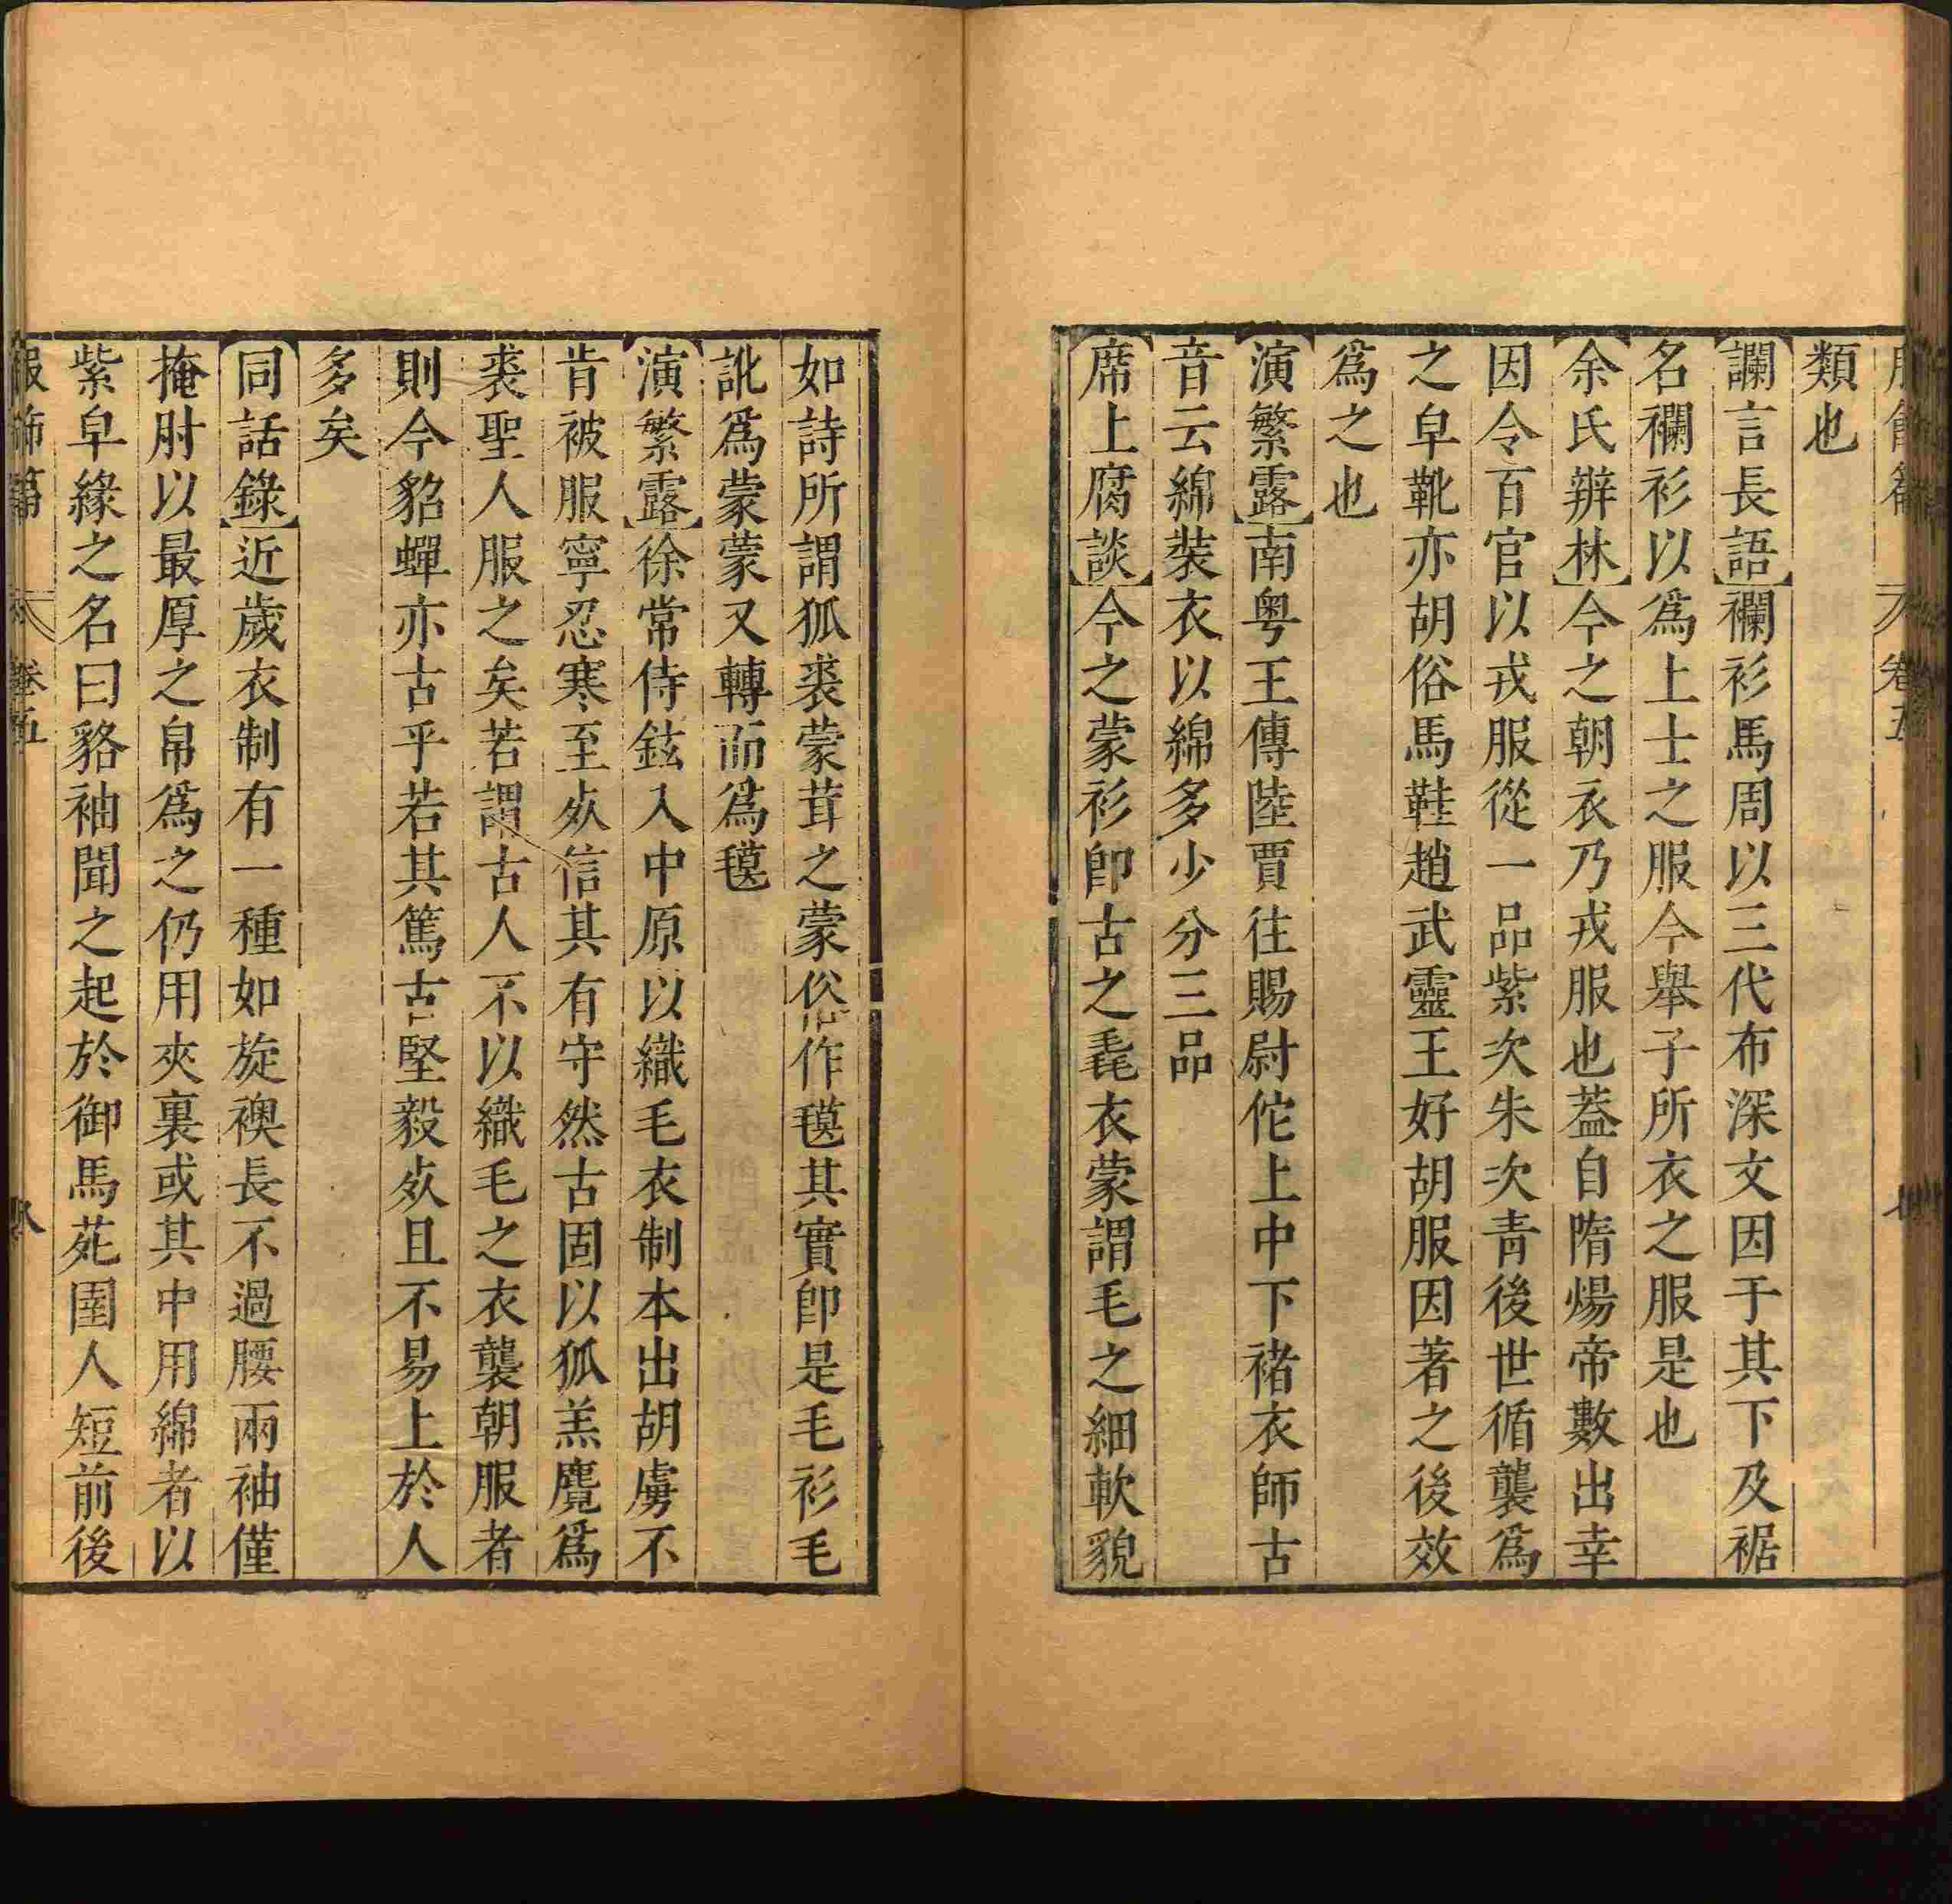 類也
讕言長語襴衫馬周以三代布深文因于其下及裾
名襴衫以爲上士之服今舉子所衣之服是也
余氏辨林今之朝衣乃戎服也蓋自隋煬帝數出幸
因令百官以戎服從一品紫次朱次青後世循襲爲
之皁靴亦胡俗馬鞋趙武靈王好胡服因著之後效
爲之也
演繁露南粤王傳陸賈往賜尉佗上中下褚衣師古
音云綿裝衣以綿多少分三品
席上腐談今之蒙衫卽古之毳衣蒙謂毛之細軟貌
如詩所謂狐裘蒙茸之蒙俗作氁其實卽是毛衫毛
訛爲蒙蒙又轉而爲氁
演繁露徐常侍鉉入中原以織毛衣制本出胡虜不
肯被服寧忍寒至死信其有守然古固以狐羔麑爲
裘聖人服之矣若謂古人不以織毛之衣襲朝服者
則今貂蟬亦古乎若其篤古堅毅死且不易上於人
多矣
同話錄近歲衣制有一種如旋襖長不過腰兩袖僅
掩肘以最厚之帛爲之仍用夾裏或其中用綿者以
紫皁緣之名曰貉袖聞之起於御馬苑圉人短前後
服飾篇 卷五 八